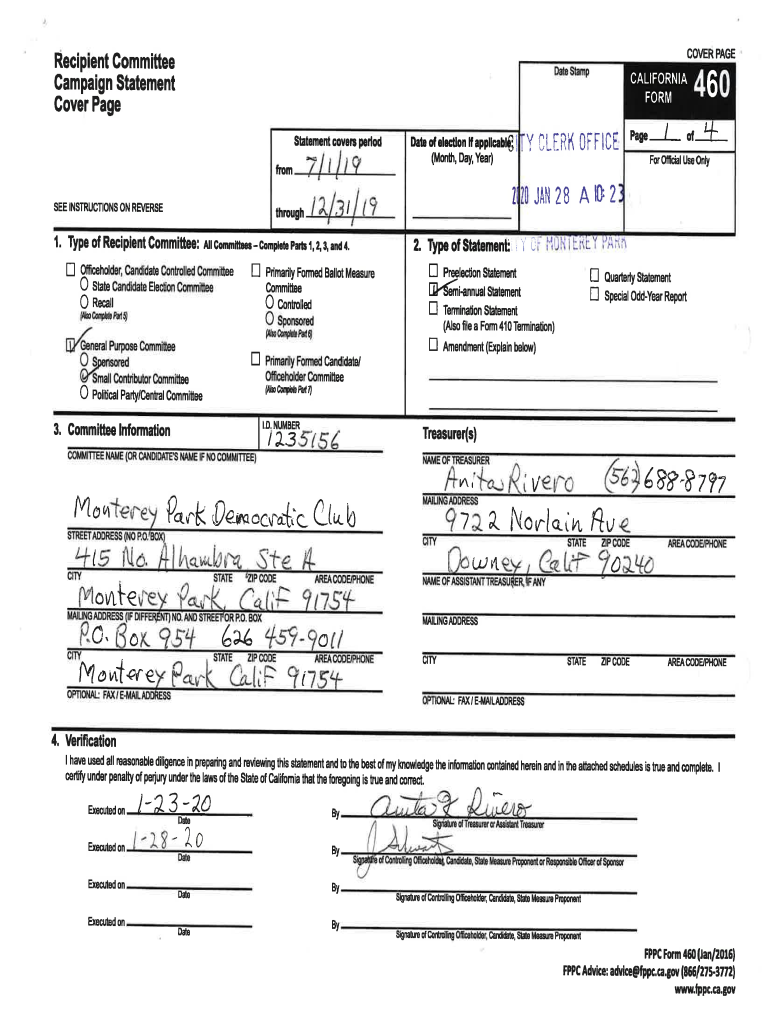 COVER PAGE
Recipient Committee
Campaign Statement
Cover Page
Date Stamp
CALIFORNIA
FORM 460
Statement covers period
from 7/1/19
through 12/31/19
Date of election if applicable:
(Month, Day, Year)
ITY CLERK OFFICE
2020 JAN 28 A 10:23
TY OF MONTEREY PARK
Page 1 of 4
For Official Use Only
SEE INSTRUCTIONS ON REVERSE
1. Type of Recipient Committee: All Committees – Complete Parts 1, 2, 3, and 4.
Officeholder, Candidate Controlled Committee
State Candidate Election Committee
Recall
(Also Complete Part 5)
General Purpose Committee
Sponsored
Small Contributor Committee
Political Party/Central Committee
Primarily Formed Ballot Measure
Committee
Controlled
Sponsored
(Also Complete Part 6)
Primarily Formed Candidate/
Officeholder Committee
(Also Complete Part 7)
2. Type of Statement:
Preelection Statement
Semi-annual Statement
Termination Statement
(Also file a Form 410 Termination)
Amendment (Explain below)
Quarterly Statement
Special Odd-Year Report
3. Committee Information
I.D. NUMBER
1235156
COMMITTEE NAME (OR CANDIDATE'S NAME IF NO COMMITTEE)
Monterey Park Democratic Club
STREET ADDRESS (NO P.O. BOX)
415 No. Alhambra Ste A
CITY STATE ZIP CODE AREA CODE/PHONE
Monterey Park, Calif 91754
MAILING ADDRESS (IF DIFFERENT) NO. AND STREET OR P.O. BOX
P.O. Box 954 626 459-9011
CITY STATE ZIP CODE AREA CODE/PHONE
Monterey Park Calif 91754
OPTIONAL: FAX / E-MAIL ADDRESS
Treasurer(s)
NAME OF TREASURER
Anita Rivero (562) 688-8797
MAILING ADDRESS
9722 Norlain Ave
CITY STATE ZIP CODE AREA CODE/PHONE
Downey, Calif 90240
NAME OF ASSISTANT TREASURER, IF ANY
MAILING ADDRESS
CITY STATE ZIP CODE AREA CODE/PHONE
OPTIONAL: FAX / E-MAIL ADDRESS
4. Verification
I have used all reasonable diligence in preparing and reviewing this statement and to the best of my knowledge the information contained herein and in the attached schedules is true and complete. I
certify under penalty of perjury under the laws of the State of California that the foregoing is true and correct.
Executed on 1-23-20
Date
By Anita F Rivero
Signature of Treasurer or Assistant Treasurer
Executed on 1-28-20
Date
By
Signature of Controlling Officeholder, Candidate, State Measure Proponent or Responsible Officer of Sponsor
Executed on
Date
By
Signature of Controlling Officeholder, Candidate, State Measure Proponent
Executed on
Date
By
Signature of Controlling Officeholder, Candidate, State Measure Proponent
FPPC Form 460 (Jan/2016)
FPPC Advice: advice@fppc.ca.gov (866/275-3772)
www.fppc.ca.gov